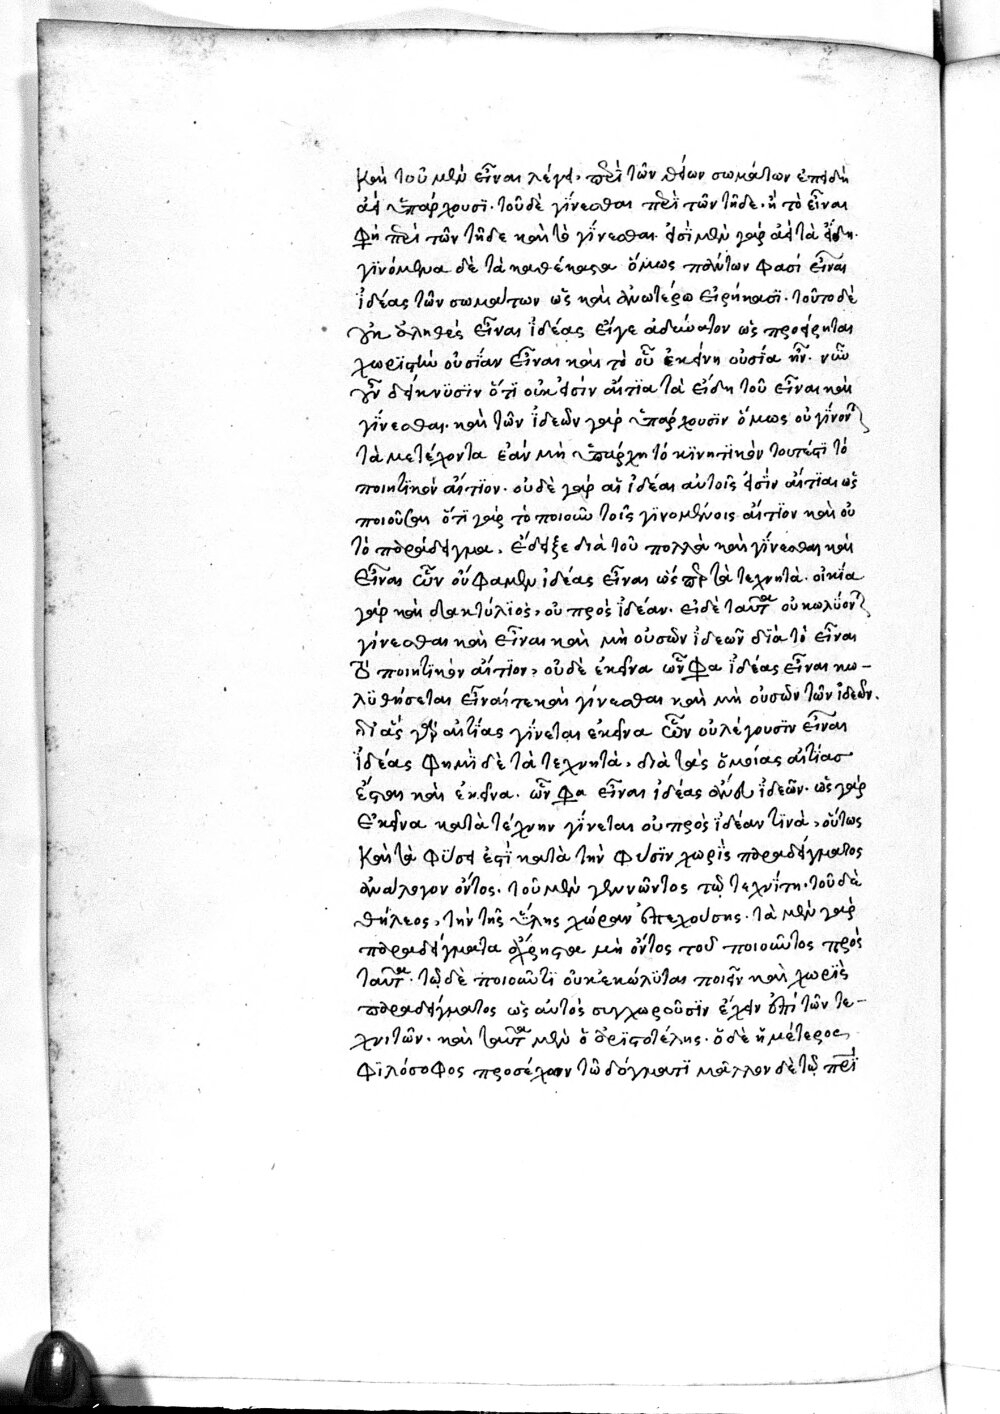 καὶ τοῦ μὲν εἶναι λέγει, περὶ τῶν θείων σωμάτων ἐπειδὴ
ἀεὶ ὑπάρχουσι. τοῦ δὲ γίνεσθαι περὶ τῶν τῇδε. ἢ τὸ εἶναι
φησὶ περὶ τῶν τῇδε καὶ τὸ γίνεσθαι. εἰσὶ μὲν γὰρ ἀεὶ τὰ εἴδη.
γινόμενα δὲ τὰ καθέκαστα ὅμως πάντων φασὶ εἶναι
ἰδέας τῶν σωμάτων ὡς καὶ ἀνωτέρω εἰρήκασι. τοῦτο δὲ
ἀληθὲς εἶναι ἰδέας εἴγε ἀδύνατον ὡς προείρηται
χωριστὴν οὐσίαν εἶναι καὶ τὸ οὗ ἐκείνη οὐσία ἦν. νῦν
οὖν δείκνυσιν ὅτι οὐκ εἰσὶν αἴτια τὰ εἴδη τοῦ εἶναι καὶ
γίνεσθαι. καὶ τῶν ἰδεῶν γὰρ ὑπάρχουσῶν ὅμως οὐ γίνονται
τὰ μετέχοντα ἐὰν μὴ ὑπάρχη τὸ κινητικὸν τουτέστι τὸ
ποιητικὸν αἴτιον. οὐδὲ γὰρ αἱ ἰδέαι αὐτοῖς εἰσὶν αἴτιαι ὡς
ποιοῦσαι ὅτι γὰρ τὸ ποιοῦν τοῖς γινομένοις αἴτιον καὶ οὐ
τὸ παράδειγμα, ἔδειξε διὰ τοῦ πολλὰ καὶ γίνεσθαι καὶ
εἶναι ὧν οὔ φαμεν ἰδέας εἶναι ὡς περὶ τὰ τεχνητά. οἰκία
γὰρ καὶ δακτύλιος, οὐ πρὸς ἰδέαν. εἰ δὲ ταῦτα οὐ κωλύονται
γίνεσθαι καὶ εἶναι καὶ μὴ οὐσῶν ἰδεῶν διὰ τὸ εἶναι
τὸ ποιητικὸν αἴτιον, οὐδὲ ἐκεῖνα ὧν φασὶ ἰδέας εἶναι κω-
λυθήσεται εἶναί τε καὶ γίνεσθαι καὶ μὴ οὐσῶν τῶν ἰδεῶν.
δι' ἃς γὰρ αἰτίας γίνεται ἐκεῖνα ὧν οὐ λέγουσιν εἶναι
ἰδέας φημὶ δὲ τὰ τεχνητὰ, διὰ τὰς ὁμοίας αἰτίας
ἔσται καὶ ἐκεῖνα. ὧν φασὶ εἶναι ἰδέας ἄνευ ἰδεῶν. ὡς γὰρ
ἐκεῖνα κατὰ τέχνην γίνεται οὐ πρὸς ἰδέαν τινὰ, οὕτως
καὶ τὰ φύσει ἐστὶ κατὰ τὴν φύσιν χωρὶς παραδείγματος
ἀνάλογον ὄντος. τοῦ μὲν γεννῶντος τῷ τεχνίτη. τοῦ δὲ
θήλεος, τὴν τῆς ὕλης χώραν ἐπεχούσης. τὰ μὲν γὰρ
παραδείγματα ἄχρηστα μὴ ὄντος τοῦ ποιοῦντος πρὸς
ταῦτα. τῷ δὲ ποιοῦντι οὐ κεκώλυται ποιεῖν καὶ χωρὶς
παραδείγματος ὡς αὐτὸς συγχωροῦσιν ἔχειν ἐπὶ τῶν τε-
χνιτῶν. καὶ ταῦτα μὲν ὁ ἀριστοτέλης. ὁ δὲ ἡμέτερος
φιλόσοφος προσέχων τῷ δόγματι μᾶλλον δὲ τῷ περὶ